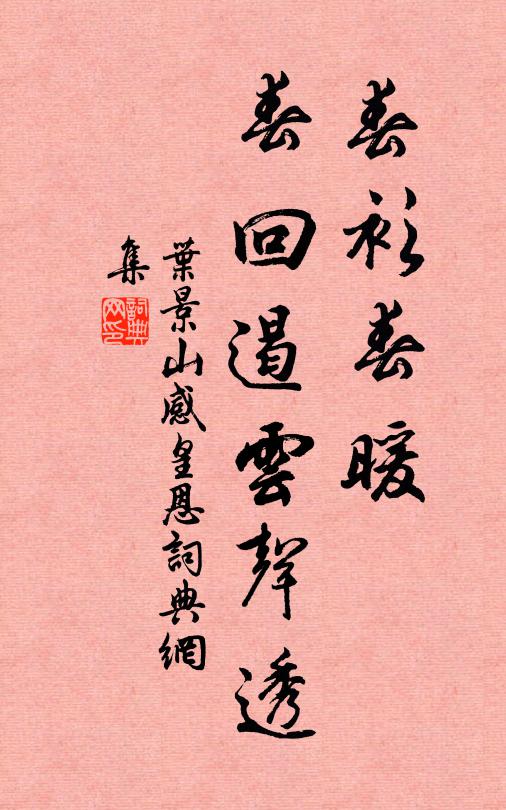 春衫春暖
春回遏雲聲透
葉景山感皇恩詞典網
集
詞典
網印